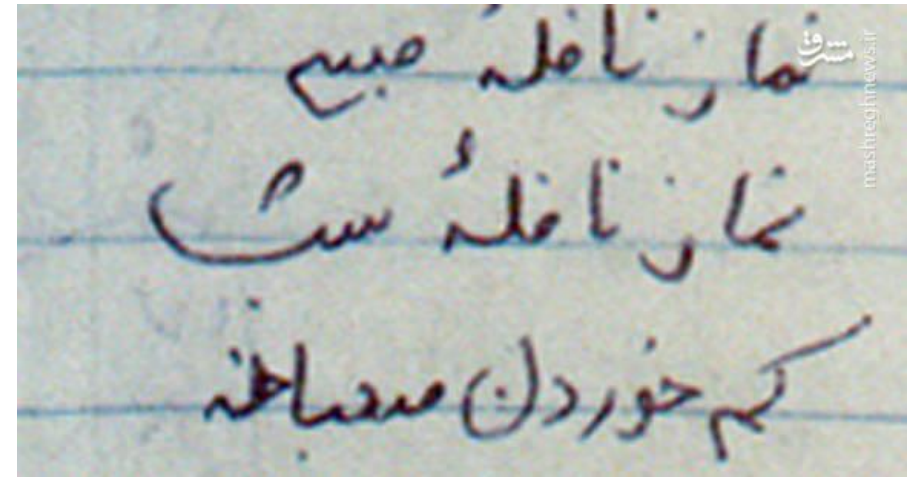 نماز نافلهٔ صبح
نماز نافلهٔ شب
کم خوردن صبحانه
مشرق
mashreghnews.ir